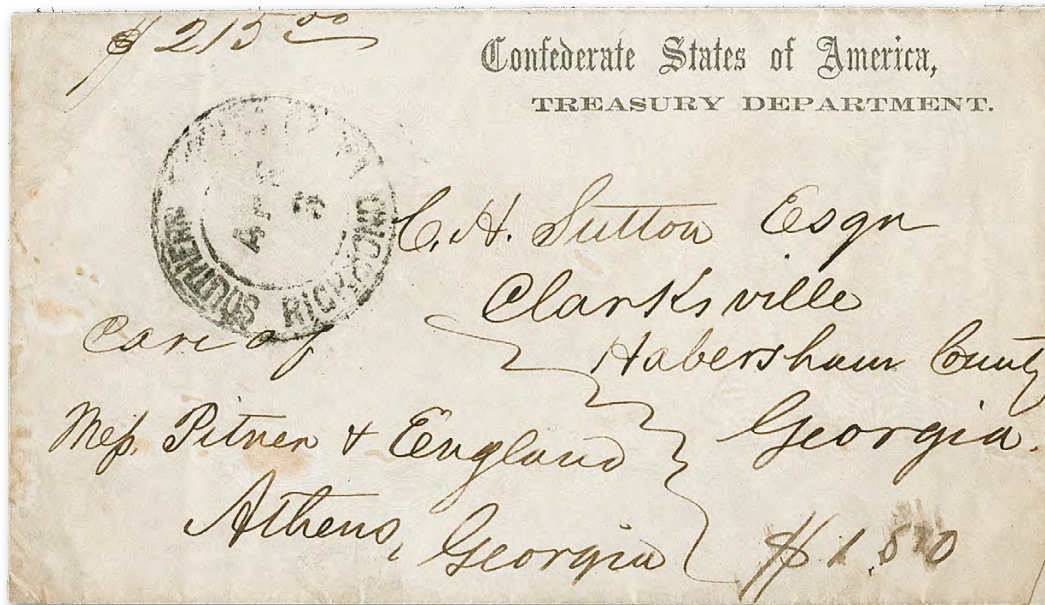 $215.00
Confederate States of America,
TREASURY DEPARTMENT.
APR
3
SOUTHERN RICHMOND
C. H. Sutton Esqr
Clarksville
Habersham County
Georgia.
Care of
Mess. Pitner & England
Athens, Georgia
$1.50